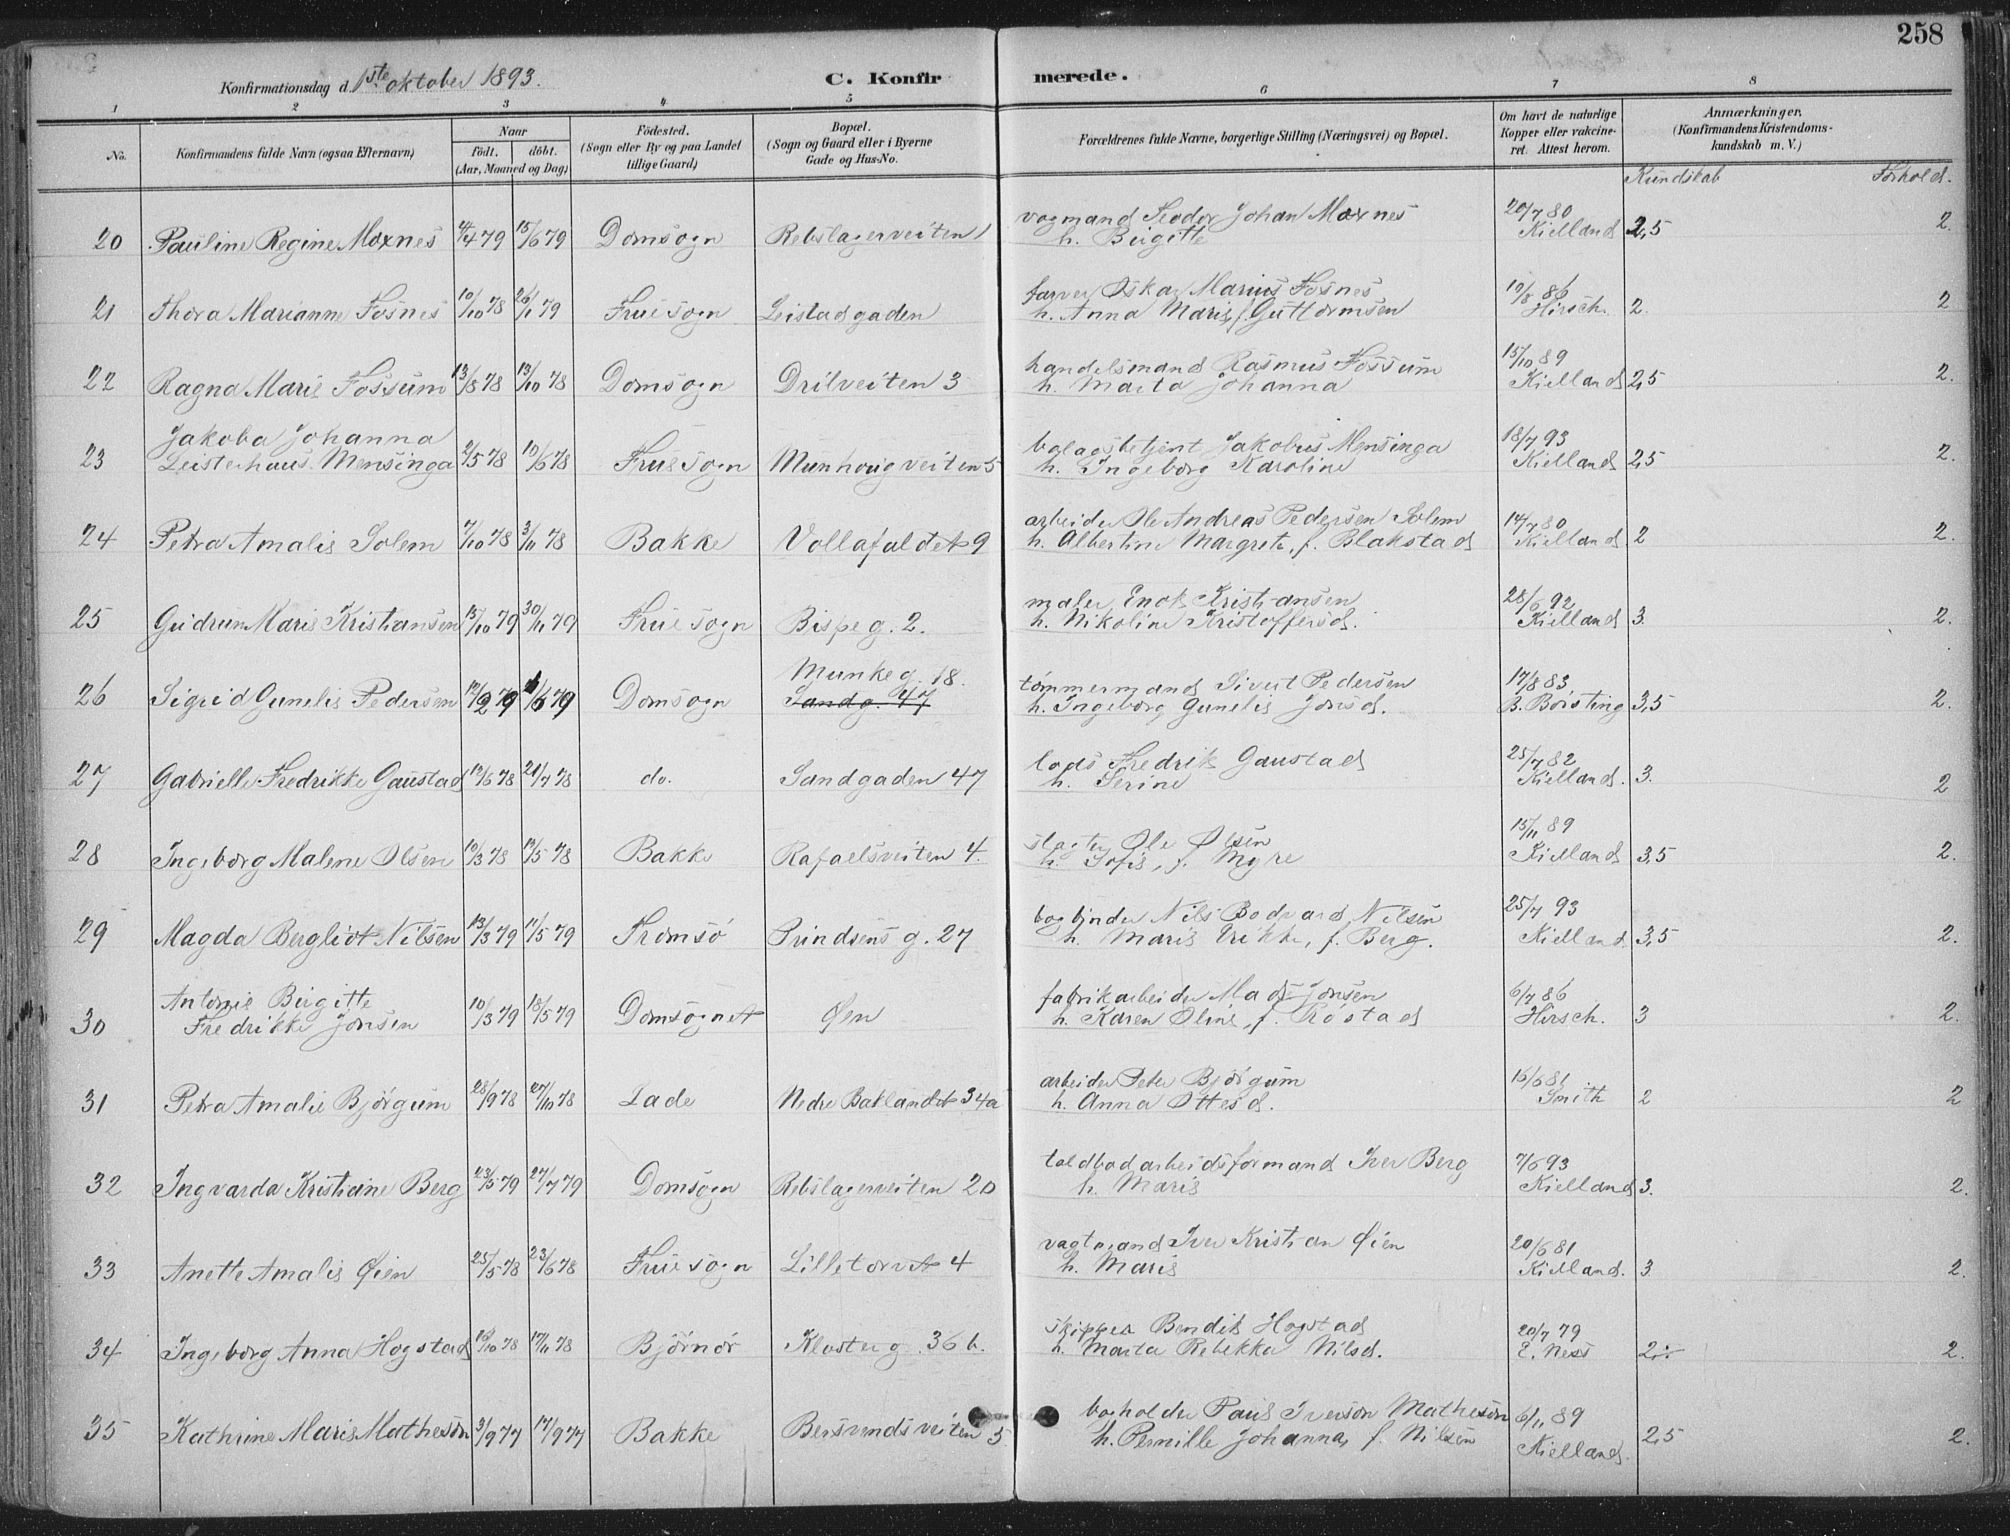 258
Konfirmationsdag d. 1ste oktober 1893.
C. Konfirmerede.
1 2 3 4 5 6 7 8
No.
Konfirmandens fulde Navn (ogsaa Efternavn)
Naar
født. døbt.
(Aar, Maaned og Dag)
Födested.
(Sogn eller By og paa Landet
tillige Gaard)
Bopæl.
(Sogn og Gaard eller i Byerne
Gade og Hus-No.
Forældrenes fulde Navne, borgerlige Stilling (Næringsvei) og Bopæl.
Om havt de naturlige
Kopper eller vakcine-
ret. Attest herom.
Anmærkninger.
(Konfirmandens Kristendoms-
kundskab m. V.)
Kundskab Forhold.
20 Pauline Regine Moxnes 4/4 79 15/6 79 Domsogn Rebslagerveiten 1 vognmand Teodor Johan Moxnes
h. Birgitte 20/7 80 Kielland 2,5 2.
21 Thora Marianne Fosnes 10/10 78 26/1 79 Frue sogn Leistadgaden farver Oskar Marius Fosnes
h. Anna Marie f. Guttormsen 10/8 86 Hirsch. 2. 2
22 Ragna Marie Fossum 13/8 78 13/10 78 Domsogn Drilveiten 3 handelsmand Rasmus Fossum
h. Marta Johanna 15/10 89 Kielland 2,5 2.
23 Jakoba Johanna
Leisterhaus Mensinga 2/5 78 10/6 78 Frue sogn Munhougveiten 5 bolagsbetjent Jakobus Mensinga
h. Ingeborg Karoline 18/7 93 Kielland 2,5 2.
24 Petra Amalie Solem 7/10 78 3/11 78 Bakke Vollafaldet 9 arbeider Ole Andreas Pedersen Solem
h. Albertine Margrete, f. Blakstad 14/7 80 Kielland. 2 2.
25 Gudrun Marie Kristiansen 15/10 79 30/11 79 Frue sogn Bispeg. 2. maler Enok Kristiansen
h. Nikoline Kristoffersd. 28/6 92 Kielland 3. 2.
26 Sigrid Gunelie Pedersen 12/2 79 1/6 79 Domsogn Munkeg. 18.
Sandg. 47 tömmermand Sivert Pedersen
h. Ingeborg Gunelie Jonsd. 17/8 83 B. Börsting 3,5 2.
27 Gabrielle Fredrikke Gaustad 13/6 78 21/7 78 do. Sandgaden 47 lods Fredrik Gaustad
h. Serine 25/7 82 Kielland. 3. 2
28 Ingeborg Malene Olsen 10/3 78 12/5 78 Bakke Rafaelsveiten 4. slagter Ole Olsen
h. Sofie, f. Myre 15/11 89 Kielland 3,5 2.
29 Magda Bergliot Nilsen 13/3 79 11/5 79 Tromsö Prindsens g. 27 bogbinder Nils Bodvard Nilsen
h. Marie Erikke, f. Berg. 25/7 93 Kielland 3,5 2.
30 Antonie Birgitte
Fredrikke Jonsen 10/3 79 18/5 79 Domsognet Øen fabrikarbeider Mads Jonsen
h. Karen Oline, f. Rostad 6/7 86 Hirsch. 3 2.
31 Petra Amalie Bjørgum 28/9 78 27/10 78 Lade Nedre Baklandet 34a arbeider Peter Bjørgum
h. Anna Ottesd. 15/6 81 Smith 2 2
32 Ingvarda Kristiane Berg 23/5 79 27/7 79 Domsogn Rebslagerveiten 20 toldbodarbeidsformand Iver Berg
h. Marie 7/6 93 Kielland 3. 2.
33 Anette Amalie Øien 25/5 78 23/6 78 Frue sogn Lilletorvet 4 vagtmand Iver Kristian Øien
h. Marie 20/6 81 Kielland. 3 2.
34 Ingeborg Anna Hogstad 16/10 78 17/11 78 Bjørnør Klosterg. 36 b. skipper Bendik Hogstad
h. Marta Rebekka Nilsd. 20/7 79 E. Ness 2 2.
35 Kathrine Marie Matheson 3/9 77 17/9 77 Bakke Bersvendsveiten 5. bogholder Paul Iverson Matheson
h. Pernille Johanna, f. Nilsen 6/11 89 Kielland. 2,5 2.